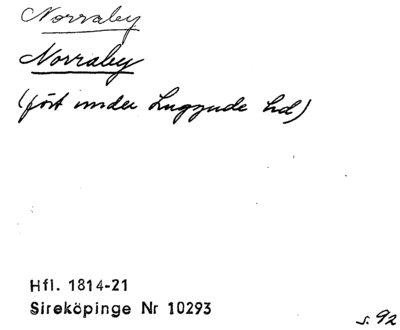 Norraby
Norraby
(fört under Luggude hd)
Hfl. 1814-21
Sireköpinge Nr 10293
s. 92